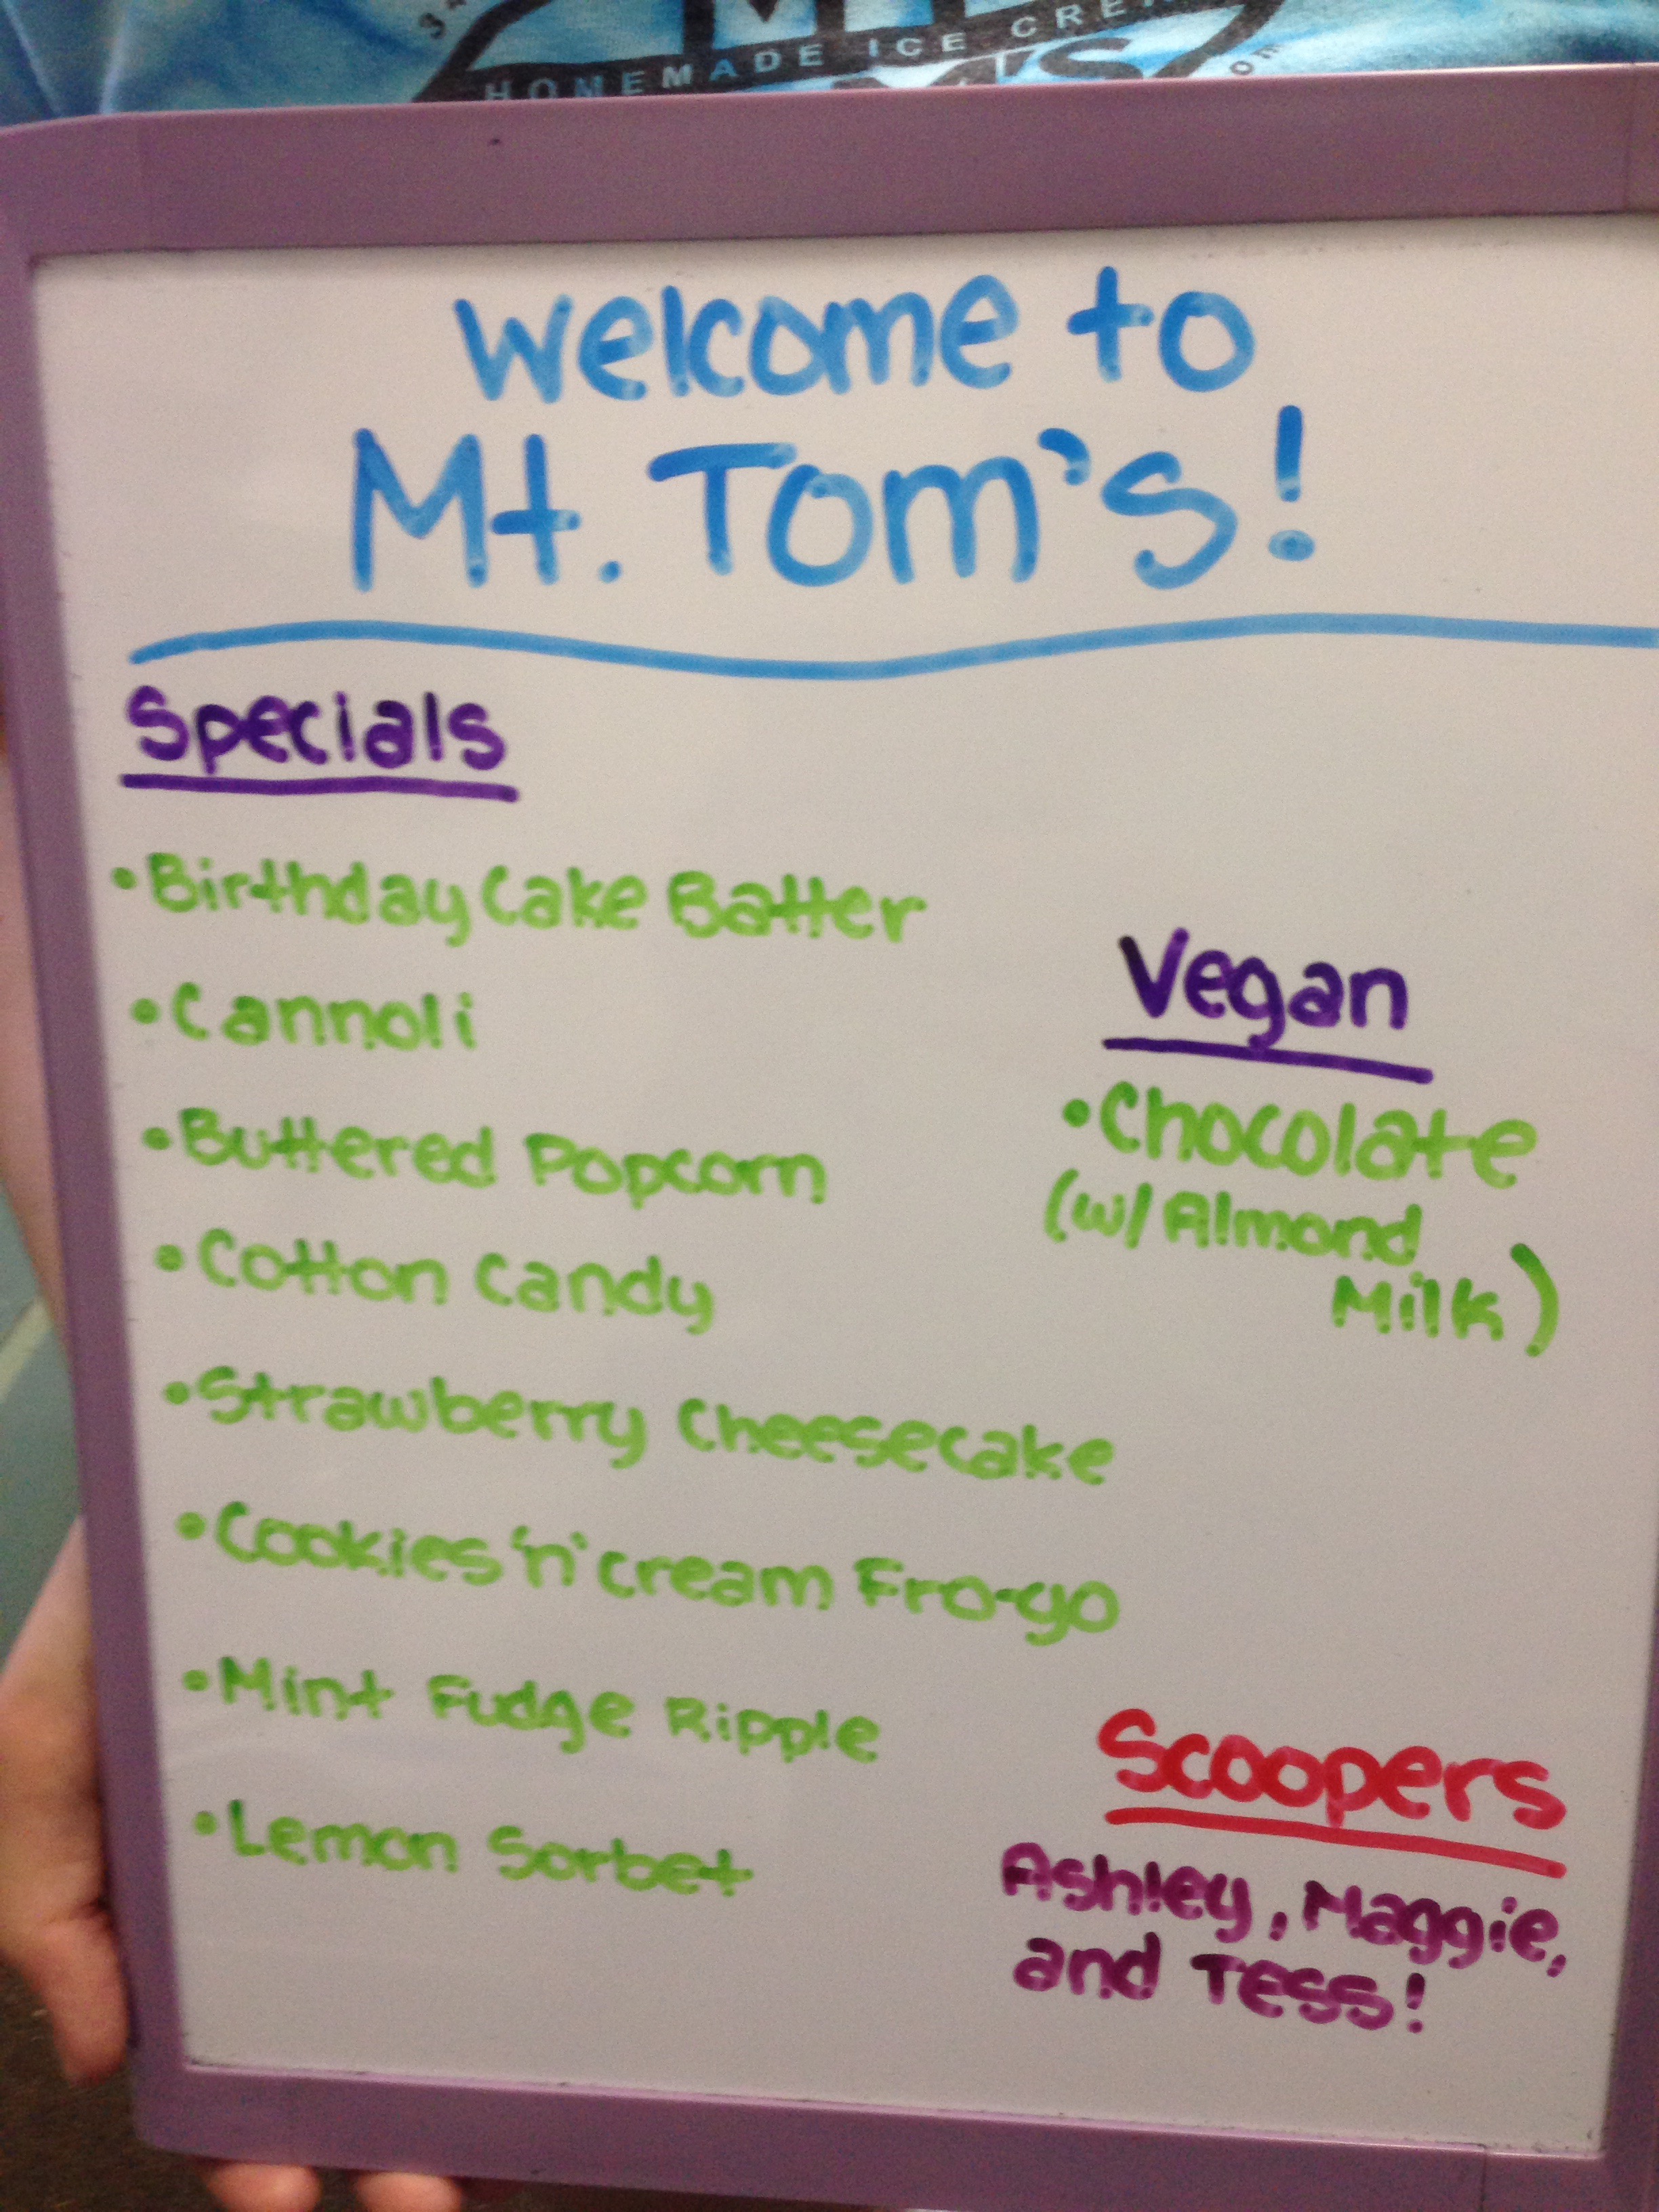 HOMEMADE ICE CREA
Welcome to
Mt. Tom's!
Specials
• Birthday Cake Batter
• Cannoli
• Buttered Popcorn
• Cotton Candy
• Strawberry Cheesecake
• Cookies 'n' cream Fro-yo
• Mint Fudge Ripple
• Lemon Sorbet
Vegan
• Chocolate
(w/ Almond
Milk)
Scoopers
Ashley, Maggie,
and Tess!